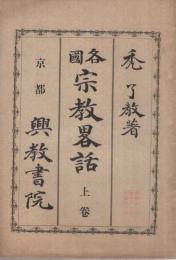 禿了教著
各國宗教畧話
上卷
京都
興教書院